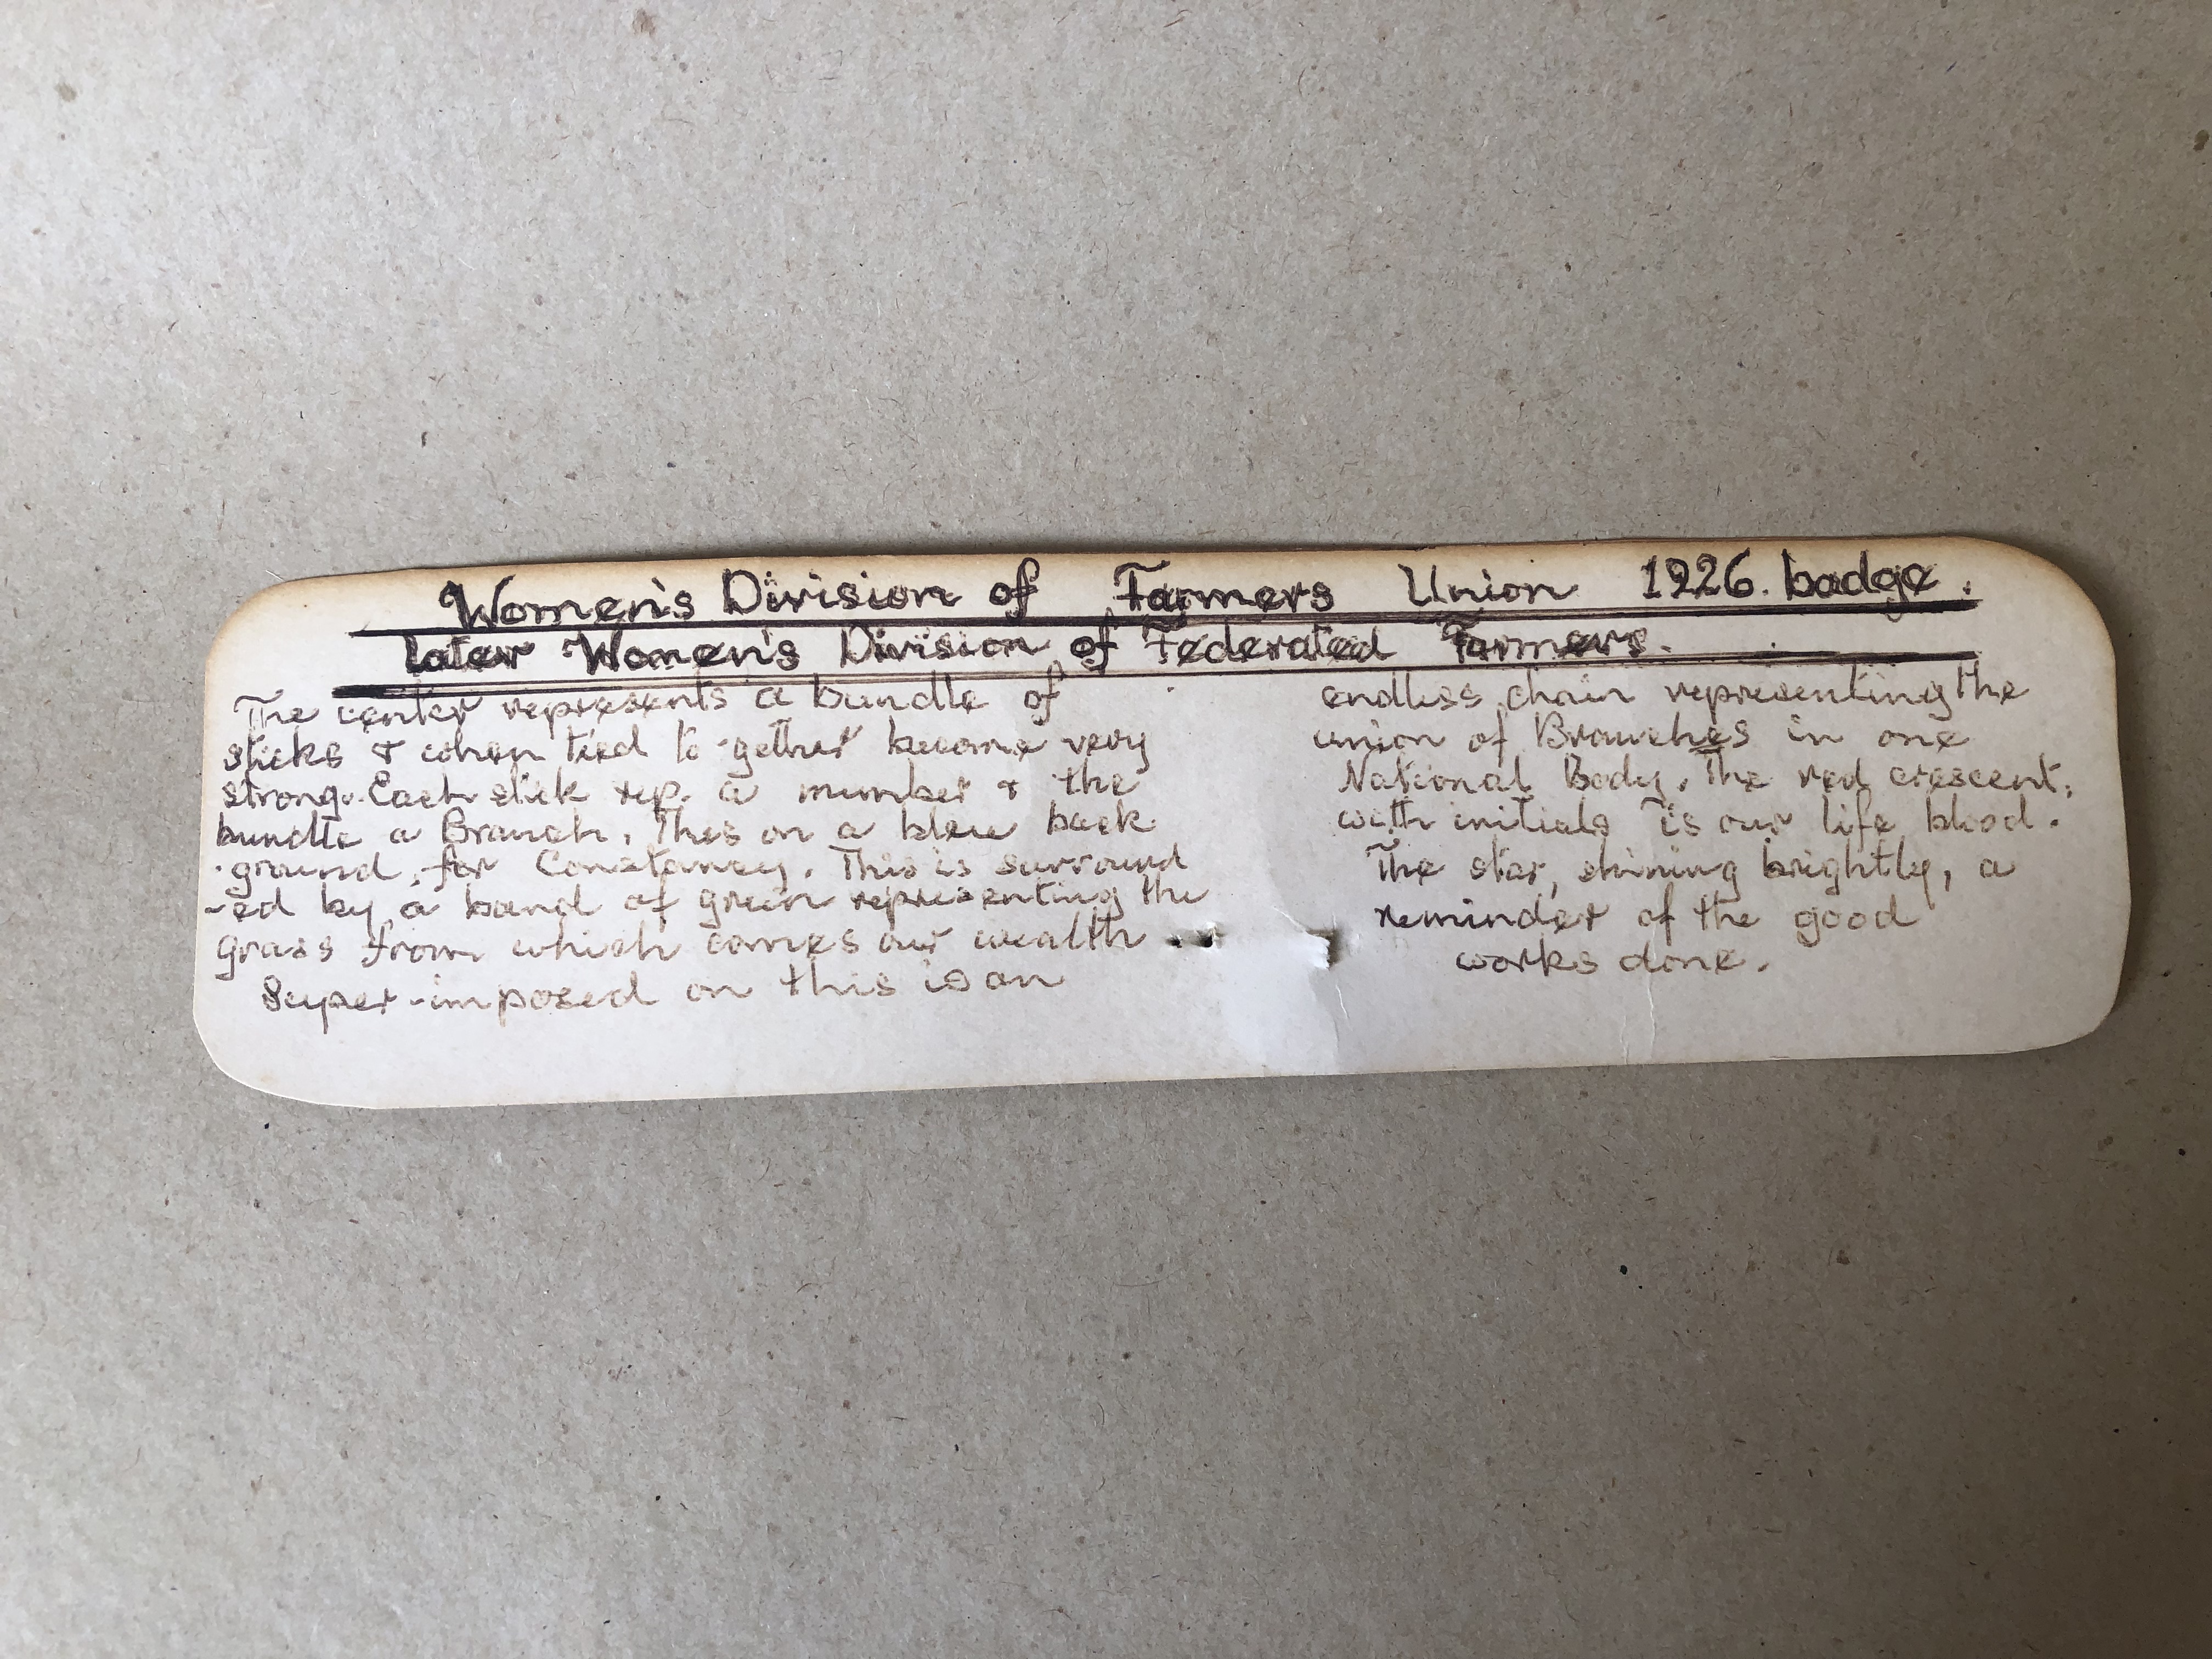 Women's Division of Farmers Union 1926. badge.
later Women's Division of Federated Farmers.
The center represents a bundle of
sticks & when tied to-gether become very
strong. Each stick rep. a member & the
bundle a Branch, this on a blue back
ground, for Constancy, This is surround
-ed by a band of green representing the
grass from which comes our wealth
Super-imposed on this is an
endless chain representing the
union of Branches in one
National Body, the red crescent,
with initials is our life blood.
The star, shining brightly, a
reminder of the good
works done.